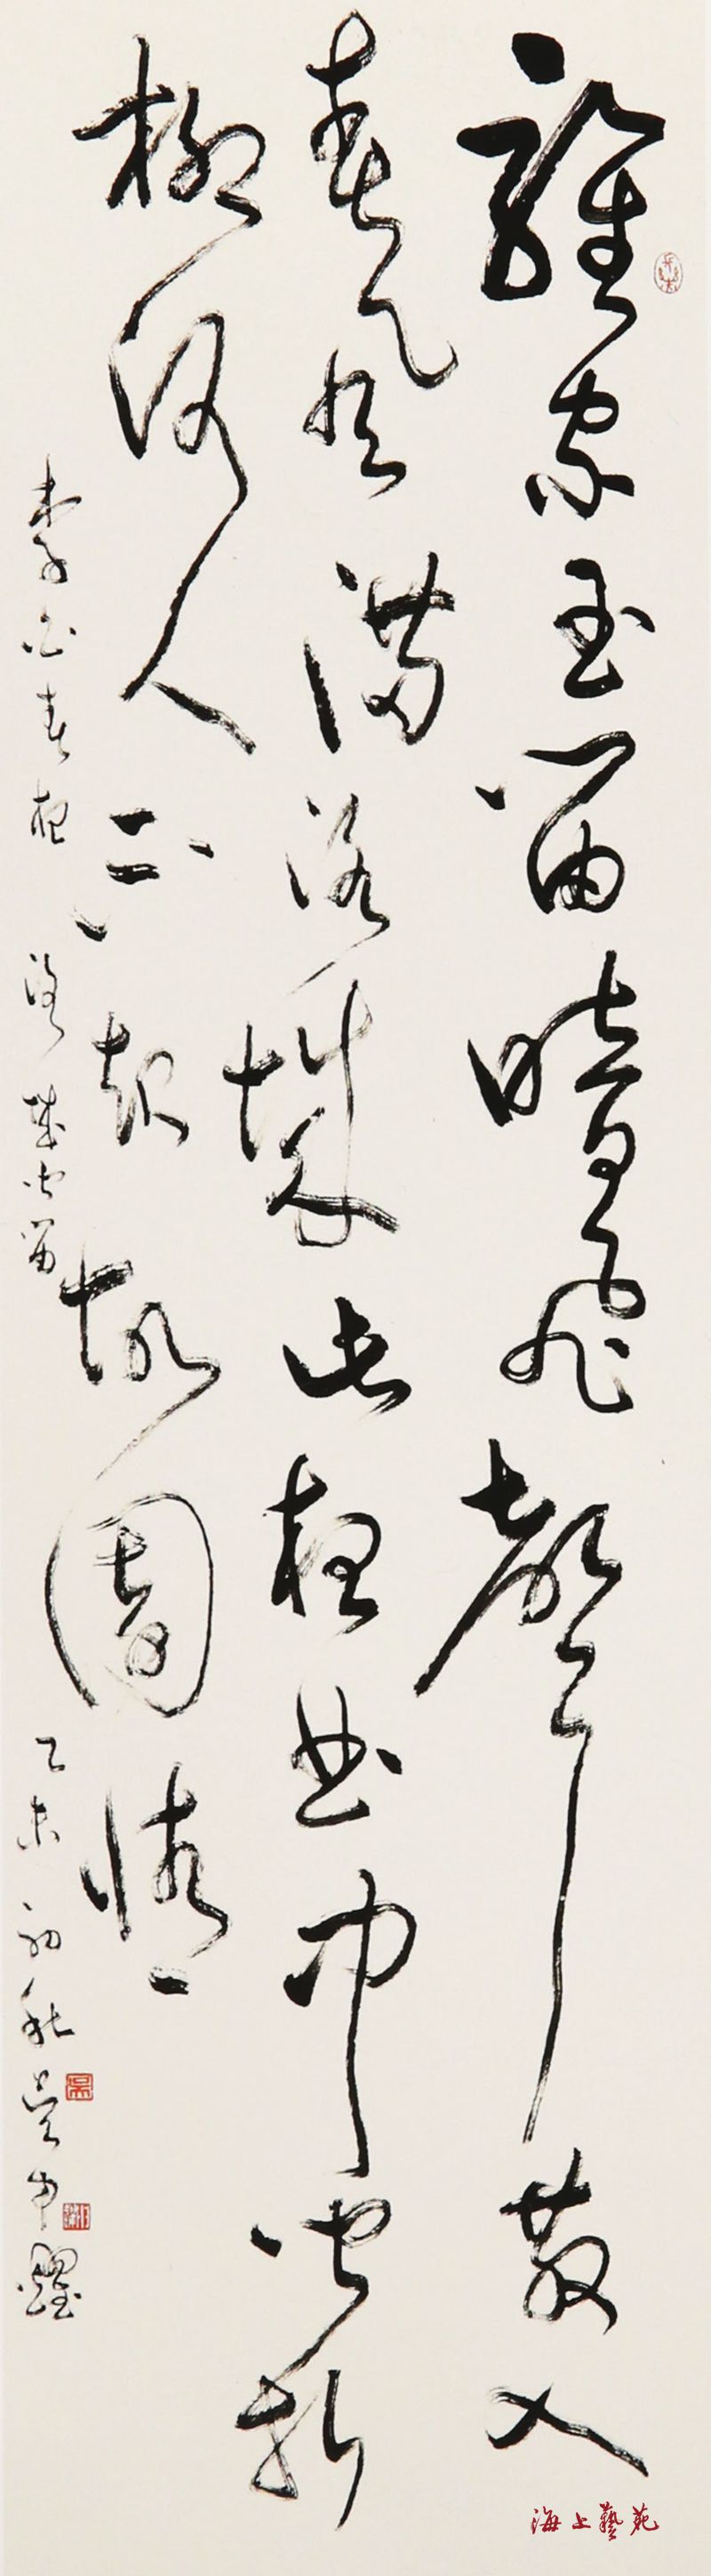 誰家玉笛暗飛聲散入
春風滿洛城此夜曲中聞折
柳何人不起故園情
李白春夜洛城聞笛 乙未初秋吴申耀
海上藝苑